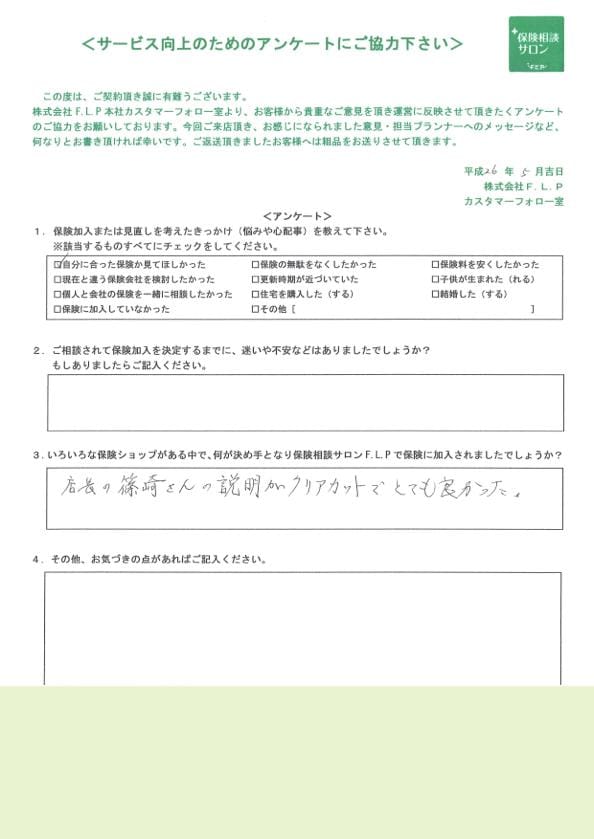 ＜サービス向上のためのアンケートにご協力下さい＞
保険相談
サロン
F.L.P
この度は、ご契約頂き誠に有難うございます。
株式会社F.L.P本社カスタマーフォロー室より、お客様から貴重なご意見を頂き運営に反映させて頂きたくアンケート
のご協力をお願いしております。今回ご来店頂き、お感じになられました意見・担当プランナーへのメッセージなど、
何なりとお書き頂ければ幸いです。ご返送頂きましたお客様へは粗品をお送りさせて頂きます。
平成26年5月吉日
株式会社F.L.P
カスタマーフォロー室
＜アンケート＞
1．保険加入または見直しを考えたきっかけ（悩みや心配事）を教えて下さい。
※該当するものすべてにチェックをしてください。
☑自分に合った保険か見てほしかった □保険の無駄をなくしたかった □保険料を安くしたかった
□現在と違う保険会社を検討したかった □更新時期が近づいていた □子供が生まれた（れる）
□個人と会社の保険を一緒に相談したかった □住宅を購入した（する） □結婚した（する）
□保険に加入していなかった □その他［ ］
2．ご相談されて保険加入を決定するまでに、迷いや不安などはありましたでしょうか？
もしありましたらご記入ください。
3．いろいろな保険ショップがある中で、何が決め手となり保険相談サロンF.L.Pで保険に加入されましたでしょうか？
店長の篠崎さんの説明がクリアカットでとても良かった。
4．その他、お気づきの点があればご記入ください。